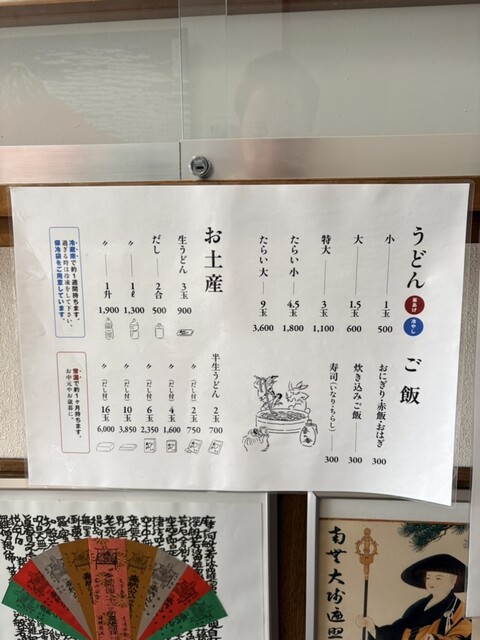 うどん 釜あげ 冷やし
小 1玉 500
大 1.5玉 600
特大 3玉 1,100
たらい小 4.5玉 1,800
たらい大 9玉 3,600
ご飯
おにぎり・赤飯・おはぎ 300
炊き込みご飯 300
寿司（いなり・ちらし） 300
お土産
生うどん 3玉 900
だし 2合 500
〃 1ℓ 1,300
〃 1升 1,900
冷蔵庫で約1週間持ちます。
過ぎる時は冷凍をして下さい。
保冷袋をご用意しています。
半生うどん 2玉 700
〃（だし付） 2玉 750
〃（だし付） 4玉 1,600
〃（だし付） 6玉 2,350
〃（だし付） 10玉 3,850
〃（だし付） 16玉 6,000
常温で約1ヶ月持ちます。
お中元やお歳暮に。
南無大師遍